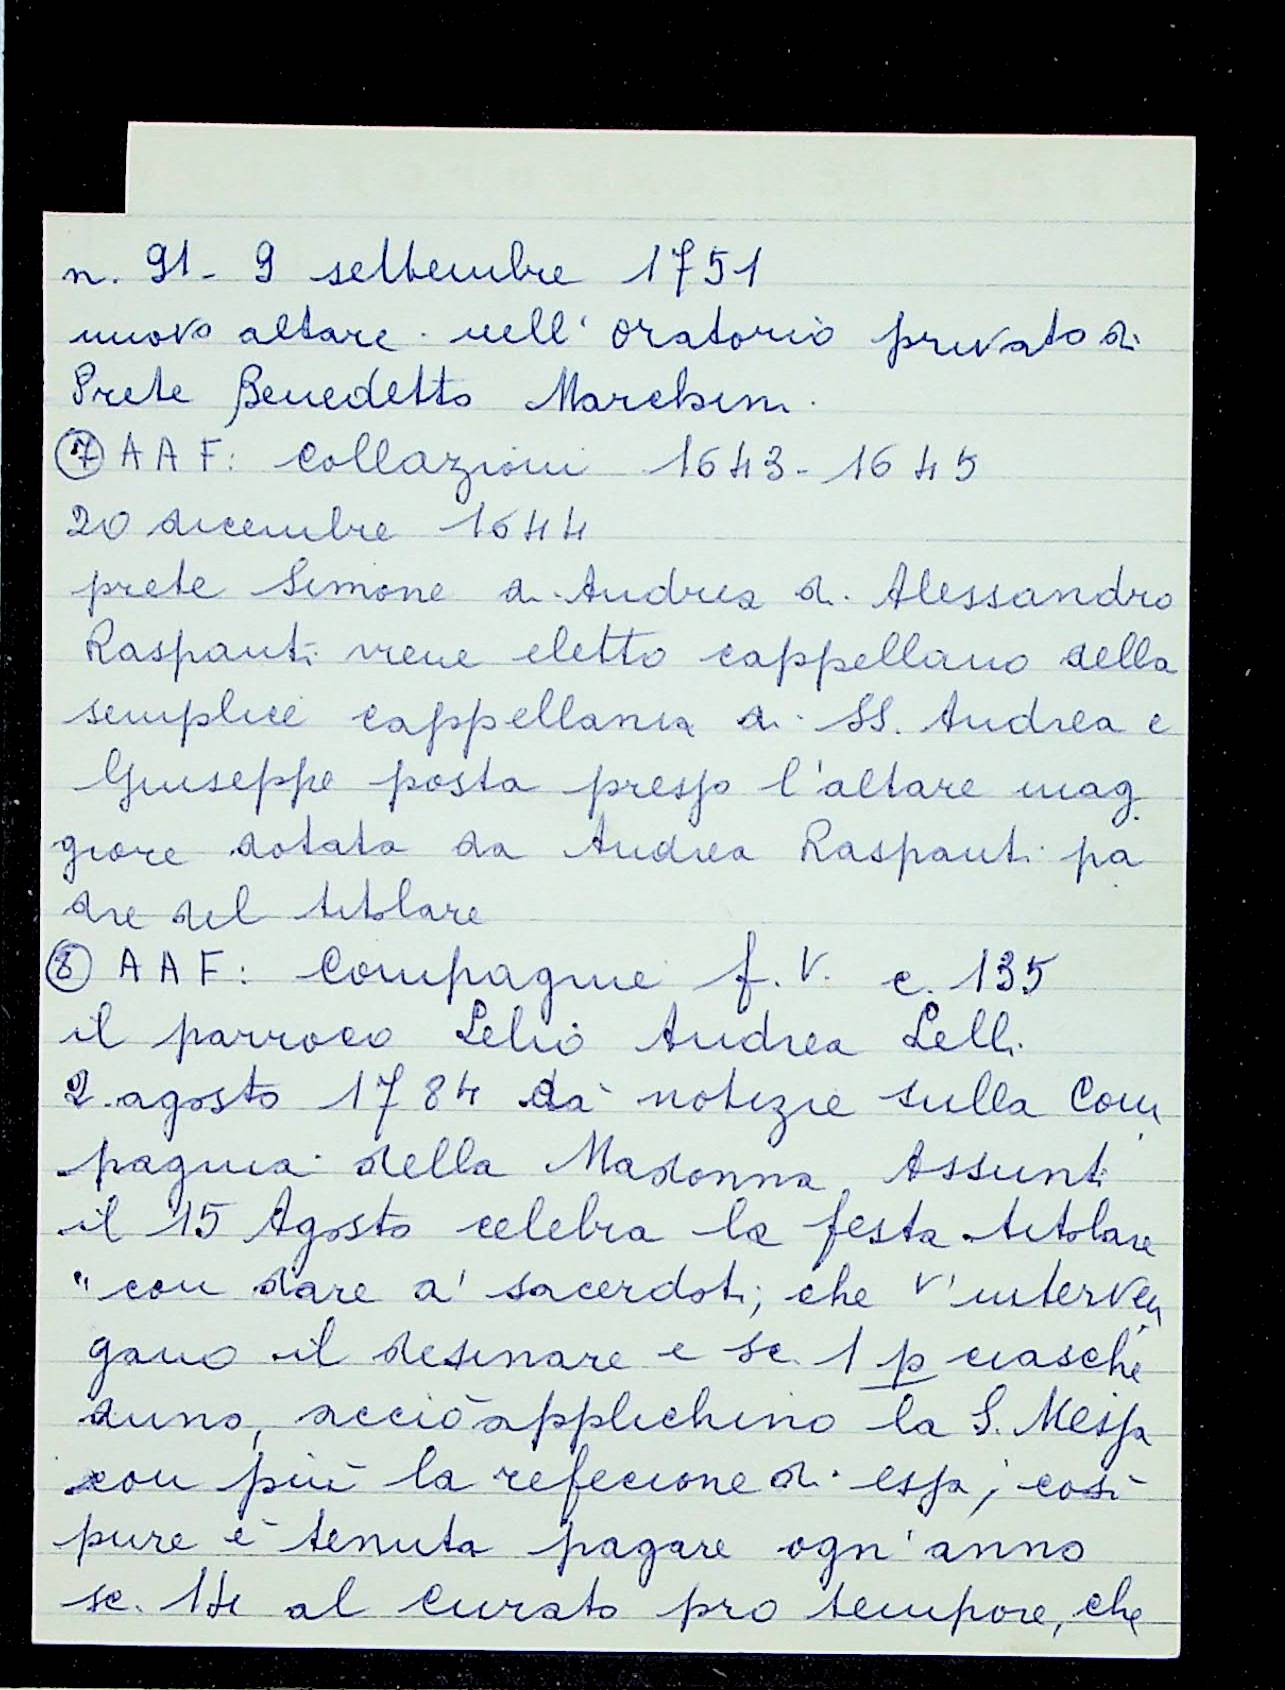 n. 91 - 9 settembre 1751
nuovo altare nell' oratorio privato di
Prete Benedetto Marchini.
⑦ AAF: Collazioni 1643-1645
20 dicembre 1644
prete Simone di Andrea di Alessandro
Raspanti viene eletto cappellano della
semplice cappellania di SS. Andrea e
Giuseppe posta presso l'altare mag
giore dotata da Andrea Raspanti pa
dre del titolare
⑧ AAF: Compagnie f. V. c. 135
il parroco Lelio Andrea Lelli
2 agosto 1784 dà notizie sulla Com
pagnia della Madonna Assunt
il 15 Agosto celebra la festa titolare
"con dare a' sacerdoti, che v'interven
gano il desinare e sc. 1 p ciasche
duno, acciò applichino la S. Messa
con più la refecione di essa; così
pure è tenuta pagare ogn'anno
sc. 14 al Curato pro tempore, che